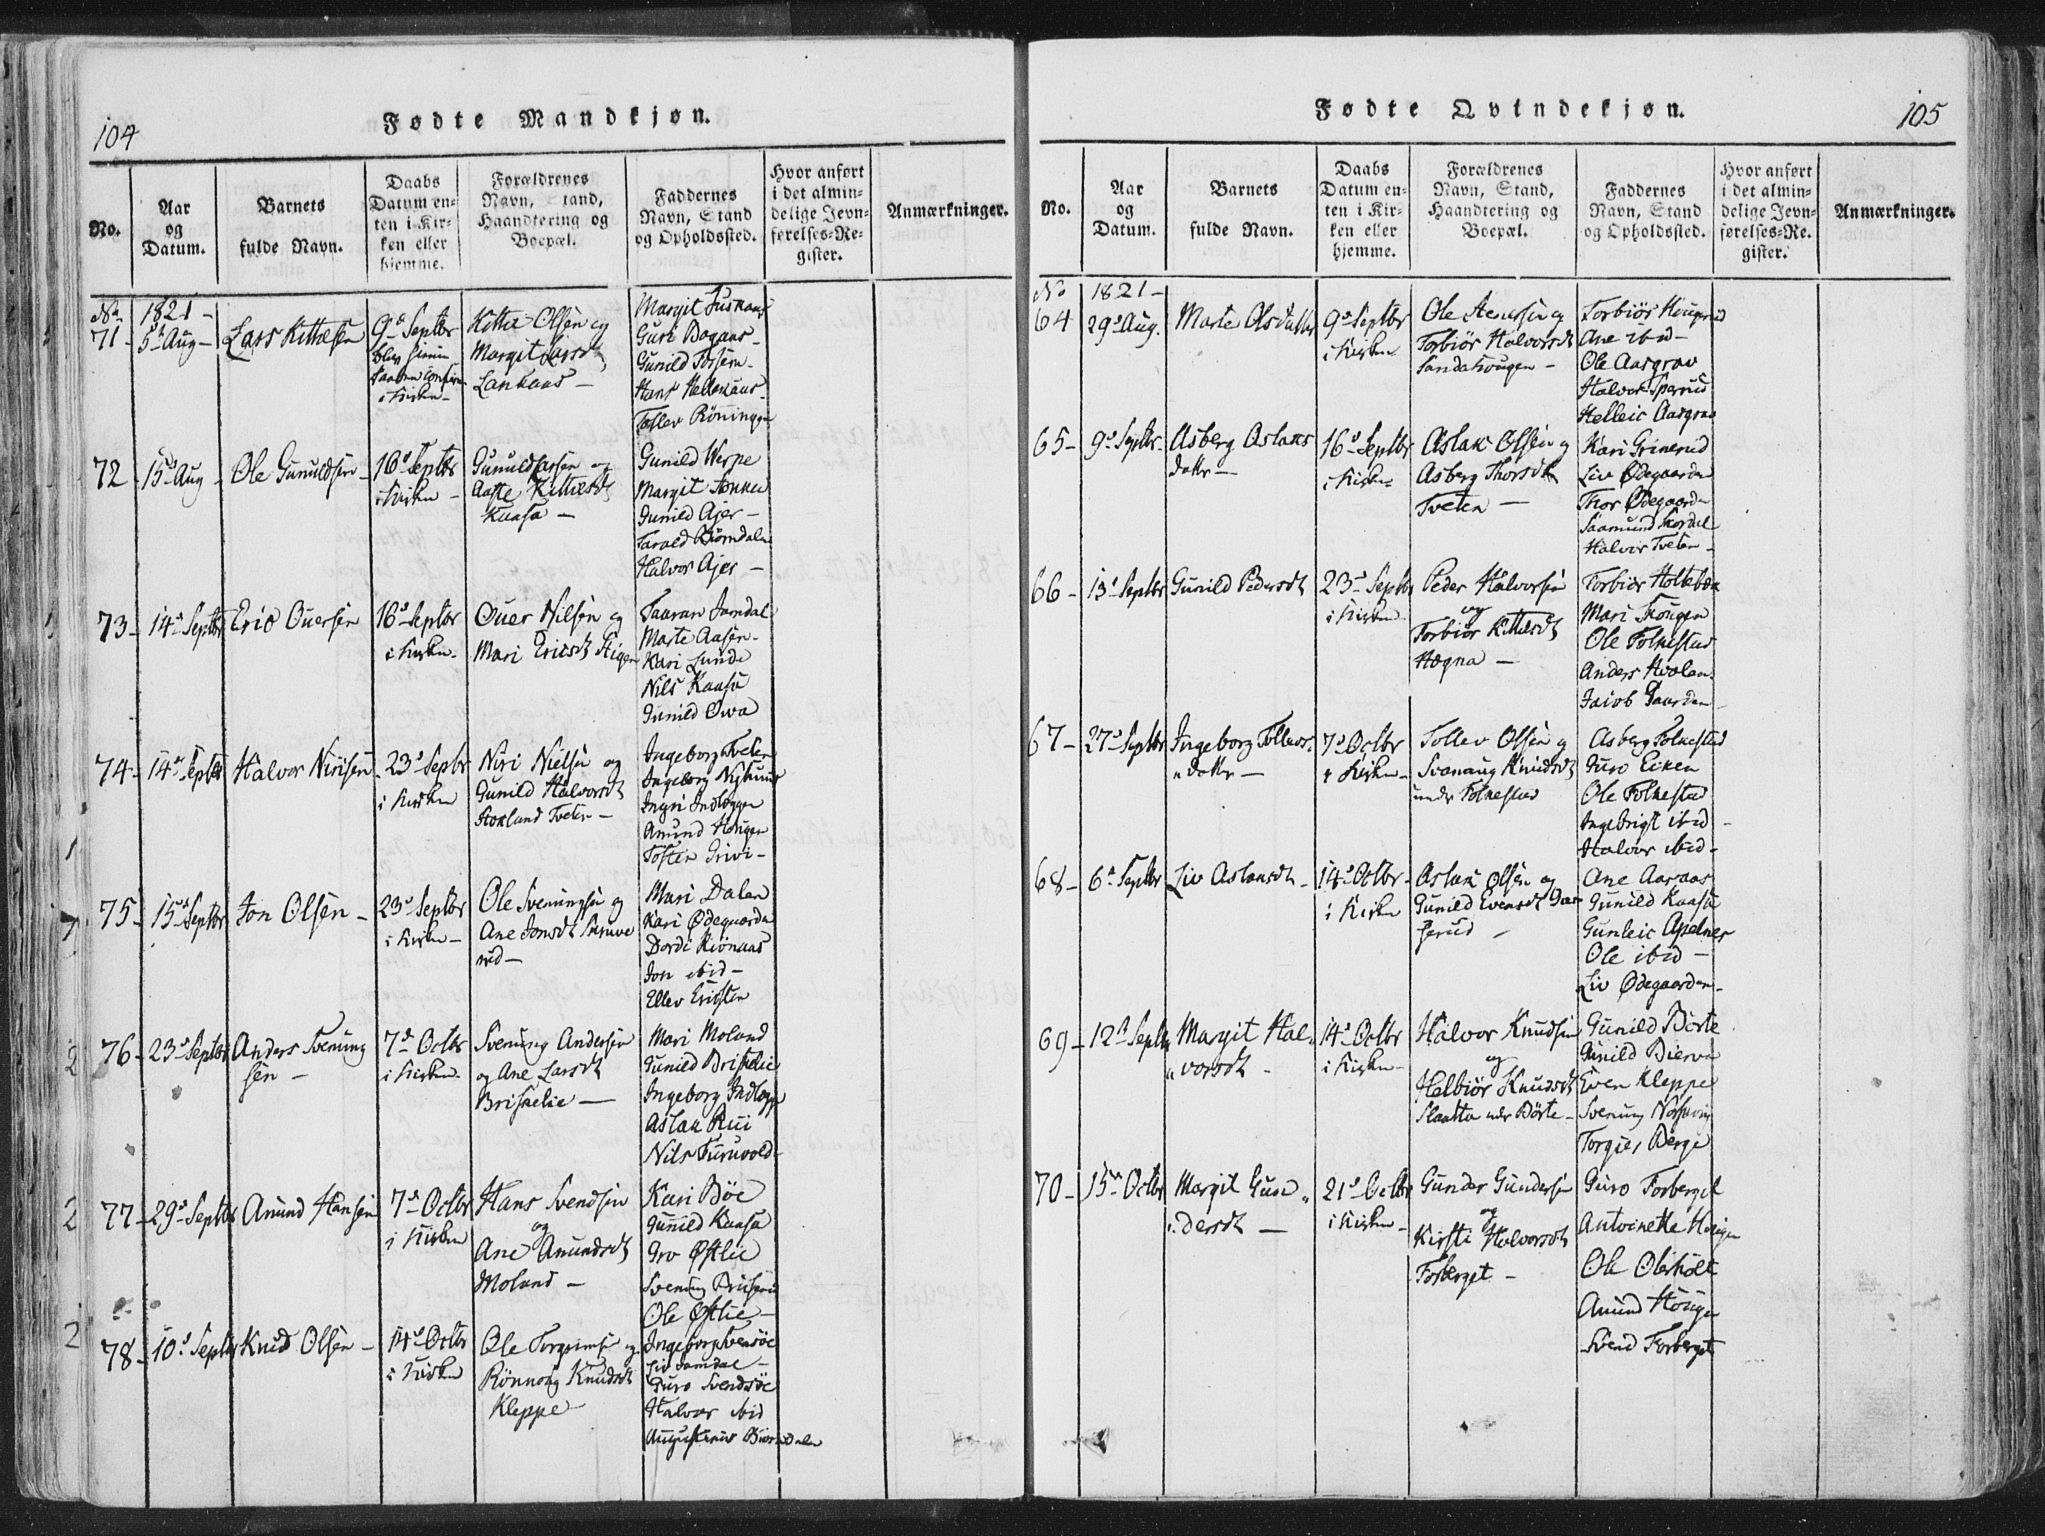 104
Fødte Mandkjøn.
No.
Aar
og
Datum.
Barnets
fulde Navn.
Daabs
Datum en-
ten i Kir-
ken eller
hjemme.
Forældrenes
Navn, Stand,
Haandtering og
Boepæl.
Faddernes
Navn, Stand
og Opholdssted.
Hvor anført
i det almin-
delige Jevn-
førelses-Re-
gister.
Anmærkninger.
No. 1821-
71- 5 Aug- Lars
9 Septbr
i Kirken-
Olsen og
Margit Larsd
Lankaas-
Margit
Guri Bogaas-
Gunild
Hans
Tollev Röningen
72 15 Aug- Ole Gunuldsen-
16 Septbr
i Kirken-
Gunuld Larsen og
Aaste Kittilsdt
Kaasa-
Gunild Werpe
Margit
Gunild Ajer-
Tarald Biörndalen
Halvor Ajer-
73- 14 Septbr Eric Ouersen
16 Septbr
i Kirken-
Ouer Nilsen og
Mari Ericsdt Stigen
Taaran Jamdal
Marte Aasen-
Kari Lunde
Nils Kaasa
Gunild Owa
74- 14 Septbr Halvor Nirisen-
23 Septbr
i Kirken
Niri Nielsen og
Gunild Halvorsdt
Stokland Tveten-
Ingeborg Tveten
Ingeborg
Ingri Indleggen
Amund Hougen
Tosten Grivi-
75- 15 Septbr Jon Olsen-
23 Septbr
i Kirken-
Ole Svenungsen og
Ane Jonsdt
rud-
Mari Dalen
Kari Ødegaarden
Dordi Kiönaas
Jon ibid-
Ellev
76- 23 Septbr Anders Svenung
sen-
7 Octbr
i Kirken-
Svenung Andersen
og Ane Larsdt
Briskelie-
Mari Moland
Gunild Briskelie
Ingeborg Indlegg
Aslak Rui
Nils Furuvold-
77- 29 Septbr Amund Hansen
7 Octbr
i Kirken
Hans Svendsen
og
Ane Amundsdt
Moland-
Kari Böe
Gunild Kaasa
Gro Østlie
Svenung
Ole Østlie-
78- 10 Septbr Knud Olsen-
14 Octbr
i Kirken
Ole Torgrimsen og
Rönnoug Knudsdt
Kleppe
Ingeborg Svendsöe
Liv Jamdal-
Guro Svendsöe
Halvor ibid
Augustinus Biörndalen
Fødte Qvindekjøn.
105
No.
Aar
og
Datum.
Barnets
fulde Navn.
Daabs
Datum en-
ten i Kir-
ken eller
hjemme.
Forældrenes
Navn, Stand,
Haandtering og
Boepæl.
Faddernes
Navn, Stand
og Opholdssted.
Hvor anført
i det almin-
delige Jevn-
førelses-Re-
gister.
Anmærkninger.
No 1821-
64 29 Aug. Marte Olsdatter
9 Septbr
i Kirken
Ole Stensen og
Torbiör Halvorsdt
Sandahougen-
Torbiör
Ane ibid-
Ole Aasgrav
Halvor
Helleic Aasgrav
65- 9 Septbr. Asberg Aslaks
datter-
16 Septbr
i Kirken
Aslak Olsen og
Asberg Thorsdt
Tveten-
Kari Grinerud
Liv Ødegaarden
Thor Ødegaarden
Saamund
Halvor Tveten-
66- 13 Septbr Gunild Pedersdt
23 Septbr
i Kirken
Peder Halvorsen
og
Torbiör Kittilsdt
Hægna-
Torbiör Holtebek
Mari Hougen
Ole Folkestad
Anders Hvolan
Jacob Gaarden
67- 27 Septbr Ingeborg Tollevs-
datter-
7 Octbr
i Kirken-
Tollev Olsen og
Svanaug Knudsdt
under Folkestad
Asberg Folkestad
Guro Eiken
Ole Folkestad
Ingebrigt ibid-
Halvor ibid-
68- 6 Septbr Liv Aslaksdt-
14 Octbr
i Kirken
Aslak Olsen og
Gunild Evensdt
serud-
Ane Aaraas
Gunild Kaasa
Gunleic Apelnes
Ole ibid-
Liv Ødegaarden-
69- 12 Septbr Margit Hal-
vorsdt-
14 Octbr
i Kirken-
Halvor Knudsen
og
Helbiör Knudsdt
Slaatta under Börte-
Gunild Börte
Gunild Bierva
Even Kleppe
Svenung
Torgier Berge
70- 15 Octbr Margit Gun-
dersdt-
21 Octbr
i Kirken-
Gunder Gundersen
og
Kirsti Halvorsdt
Forberget-
Guro Forberget
Antoinette Hougen
Ole Olsholt
Amund Hougen
Svend Forberget